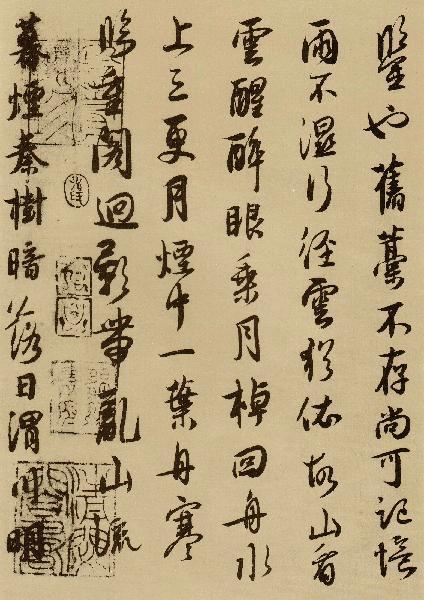 鑒也舊藁不存尚可記憶
雨不濕行徑雲猶依故山看
雲醒醉眼乘月棹回舟水
上三更月煙中一葉舟寒
臨重閣迥影帶亂山
暮煙秦樹暗落日渭川明